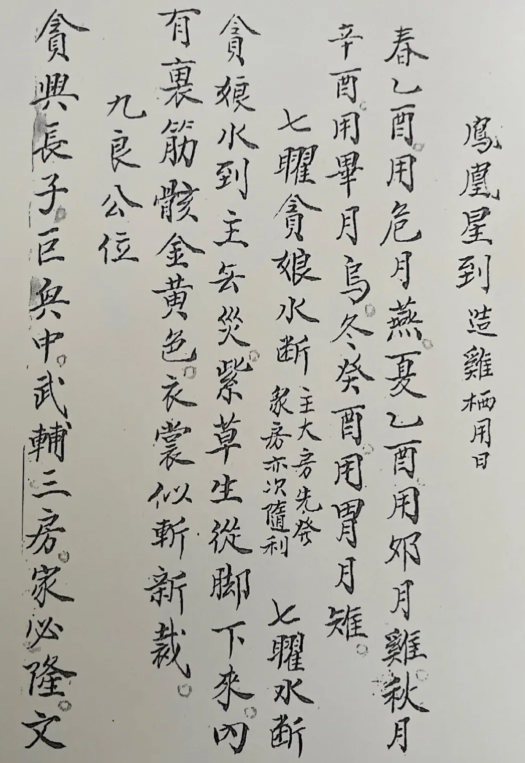 鳳凰星到造雞栖用日
春乙酉用危月燕夏乙酉用昴月雞秋月
辛酉用畢月烏冬癸酉用胃月雉
七曜貪娘水断主大房先發衆房亦次隨利七曜水断
貪娘水到主無災紫草生從脚下來内
有裹筋骸金黄色衣裳似斬新裁
九良公位
貪興長子巨與中武輔三房家必隆文